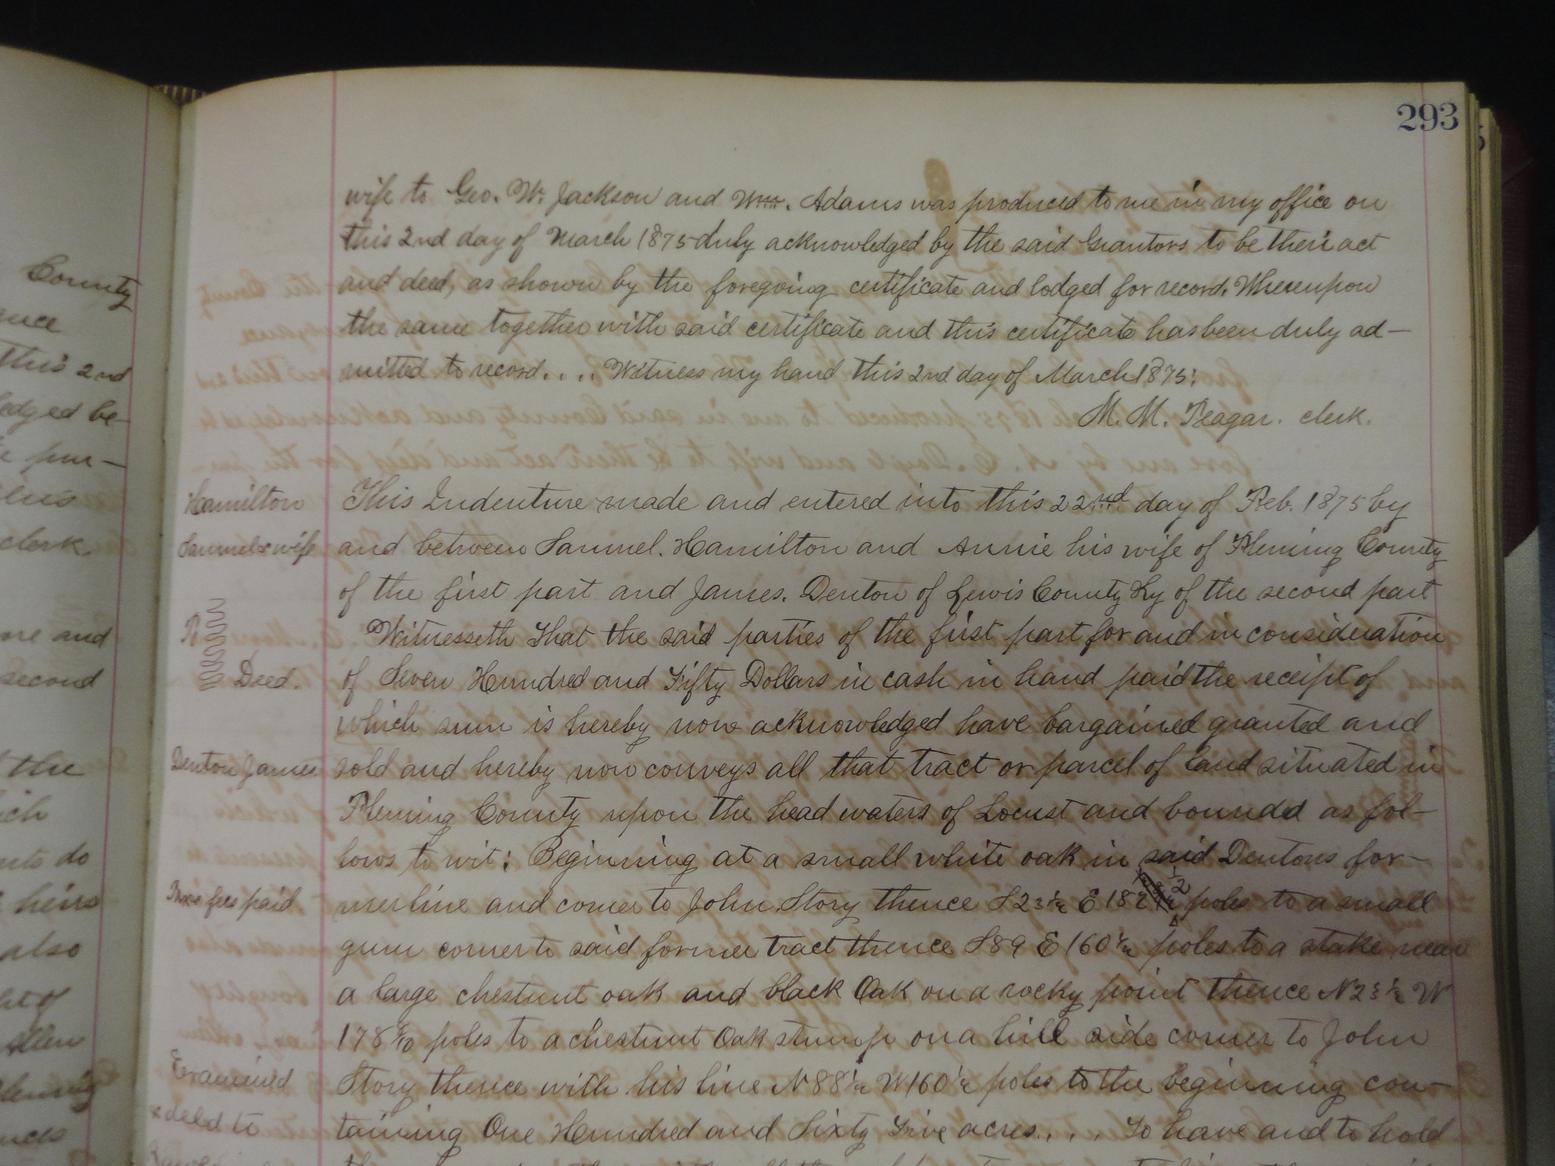 293
wife to Geo. W. Jackson and Wm. Adams was produced to me in my office on
this 2nd day of March 1875 duly acknowledged by the said Grantors to be their act
and deed, as shown by the foregoing certificate and lodged for record. Whereupon
the same together with said certificate and this certificate has been duly ad-
mitted to record.... Witness my hand this 2nd day of March 1875.
M. M. Teagar. clerk.
Hamilton
Samuel & wife
Deed.
Denton James
fees paid
Examined
& deld to
This Indenture made and entered into this 22nd day of Feb. 1875 by
and between Samuel. Hamilton and Annie his wife of Fleming County
of the first part and James. Denton of Lewis County Ky of the second part
Witnesseth That the said parties of the first part for and in consideration
of Seven Hundred and Fifty Dollars in cash in hand paid the receipt of
which sum is hereby now acknowledged have bargained granted and
sold and hereby now conveys all that tract or parcel of land situated in
Fleming County upon the head waters of Locust and bounded as fol-
lows to wit: Beginning at a small white oak in said Dentons for-
mer line and corner to John Story thence S 23 1/2 E 182 1/2 poles to a small
gum corner to said former tract thence S 89 E 160 1/2 poles to a stake near
a large chestnut oak and black Oak on a rocky point thence N 23 1/2 W
178 poles to a chestnut Oak stump on a hill side corner to John
Story thence with his line N 88 1/2 W 160 1/2 poles to the beginning con-
taining One Hundred and Sixty Five acres.... To have and to hold
County
this 2nd
clerk
and
second
the
do
heirs
also